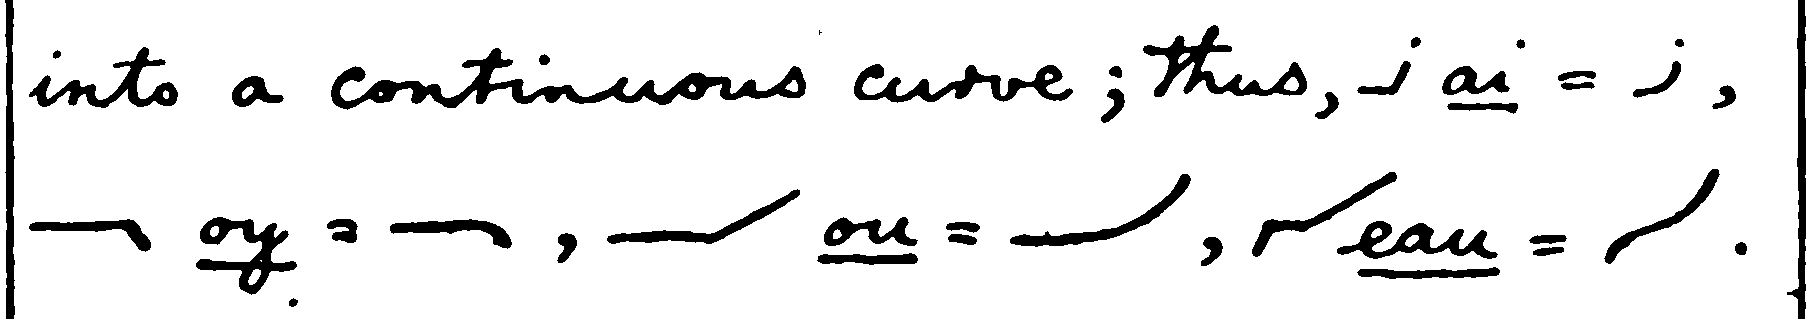 into a continuous curve; thus, ai = ,
oy = , ou = , eau = .